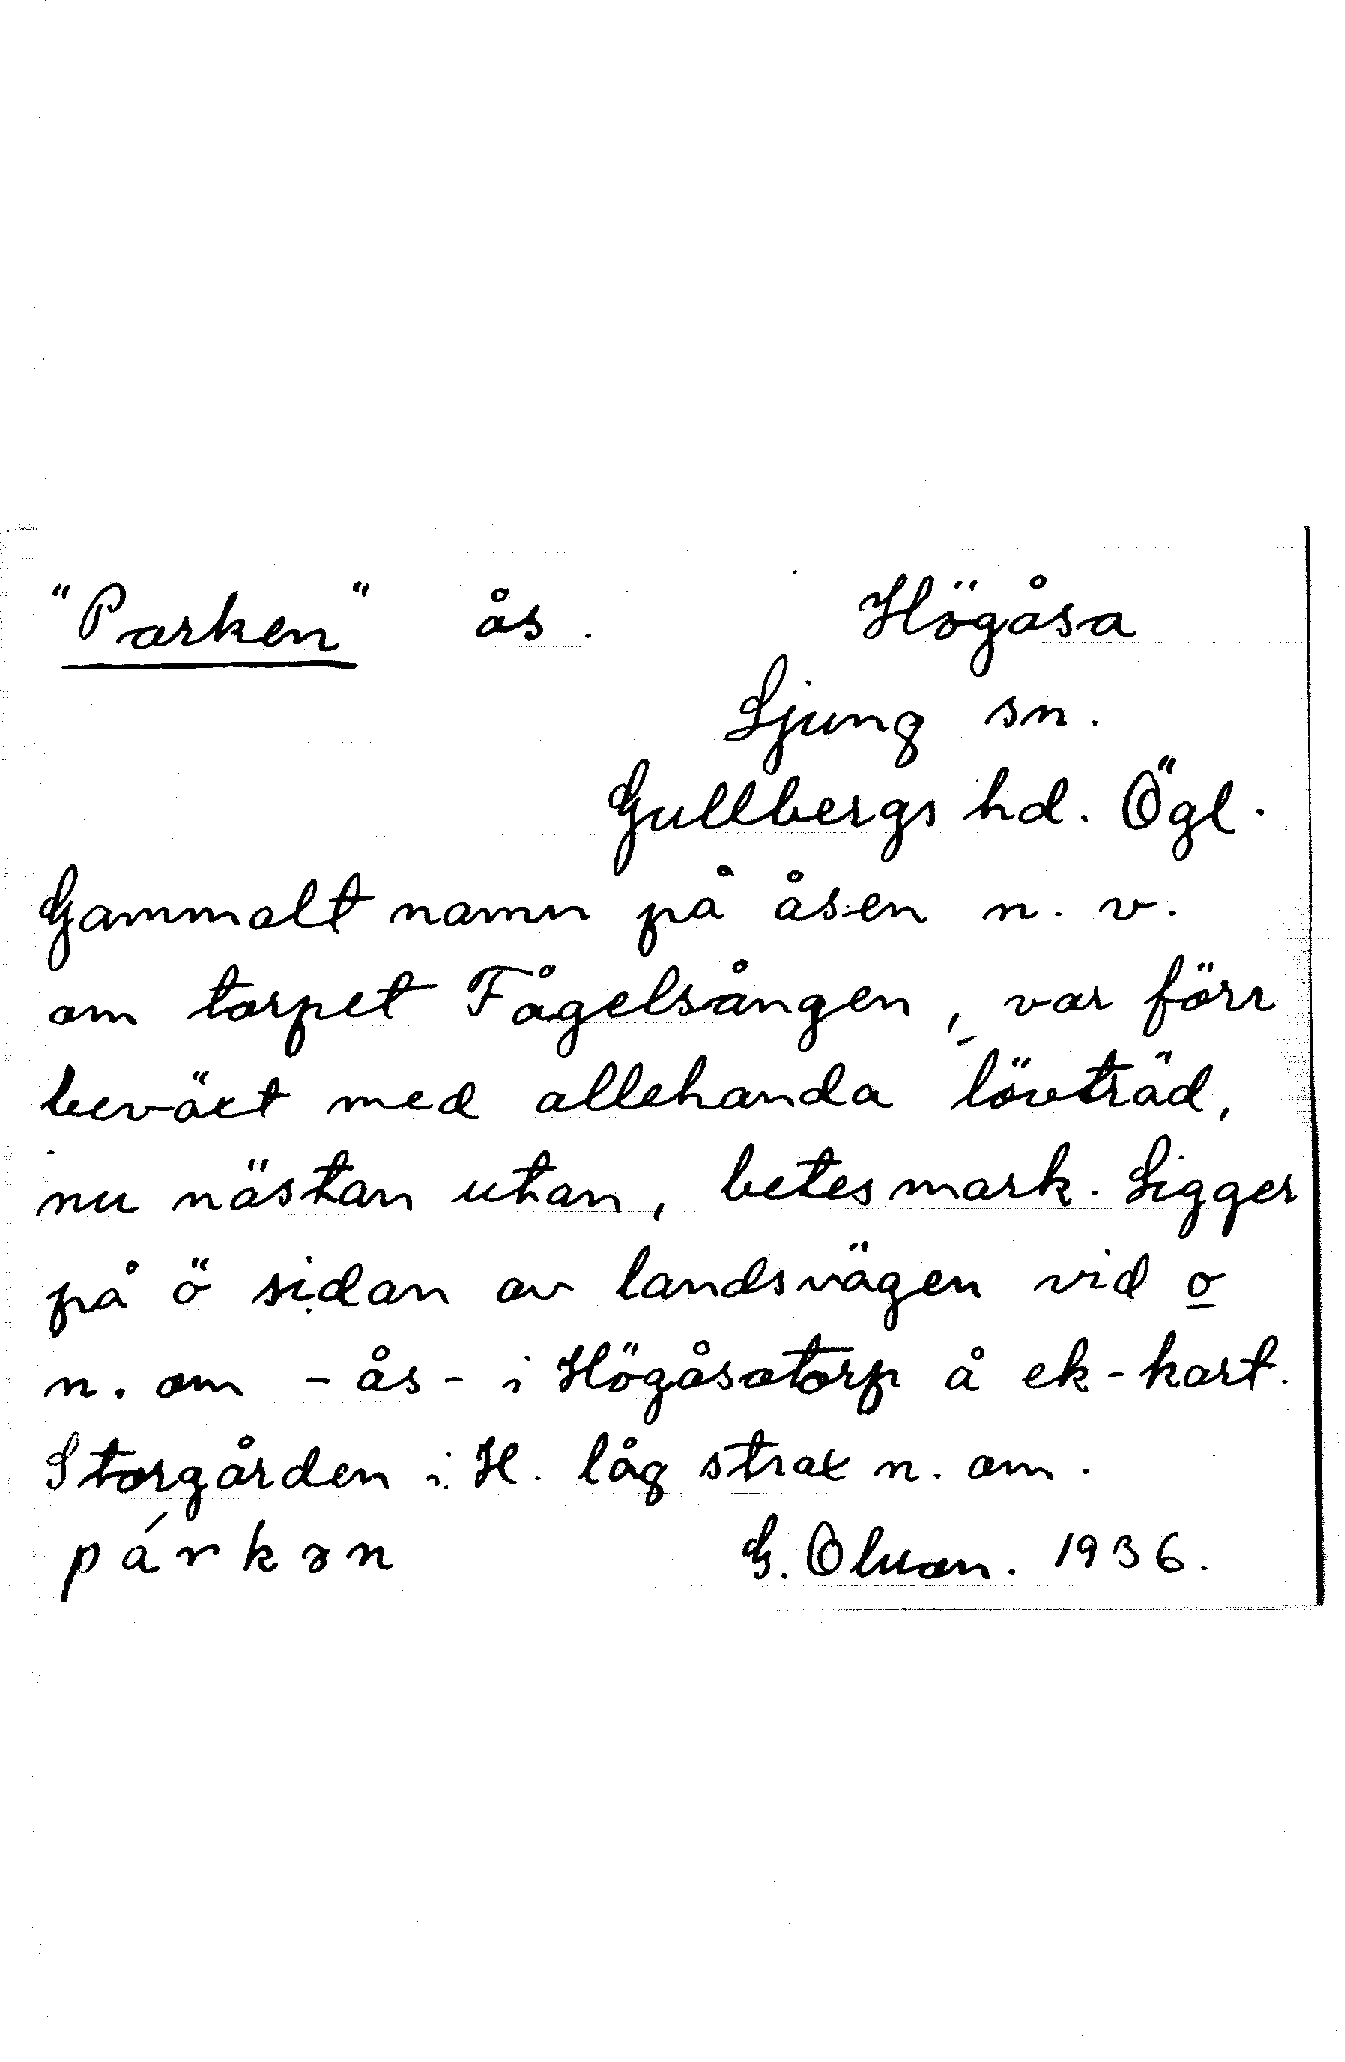 "Parken" ås. Högåsa
Ljung sn.
Gullbergs hd. Ögl.
Gammalt namn på åsen n. v.
om torpet Fågelsången, var förr
beväxt med allehanda lövträd,
nu nästan utan, betesmark. Ligger
på ö sidan av landsvägen vid o
n. om - ås - i Högåsatorp å ek-kart.
Storgården i H. låg strax n. om.
párkən G. Olsson. 1936.